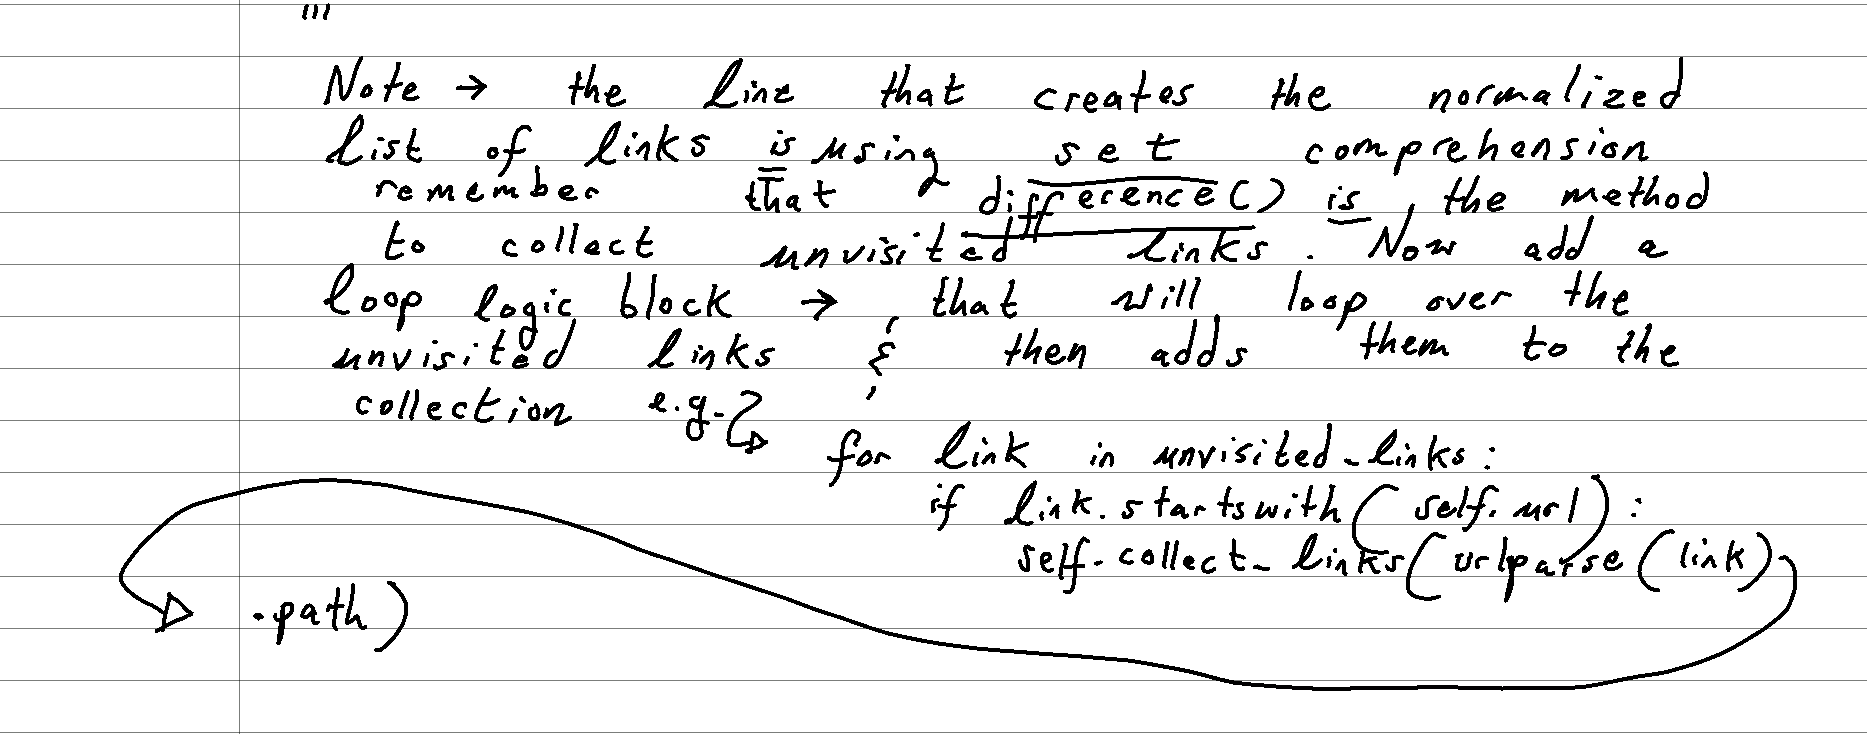 '''
Note → the line that creates the normalized
list of links is using set comprehension
remember that difference() is the method
to collect unvisited links. Now add a
loop logic block → that will loop over the
unvisited links & then adds them to the
collection e.g.
for link in unvisited_links:
if link.startswith(self.url):
self.collect_links(urlparse(link)
.path)